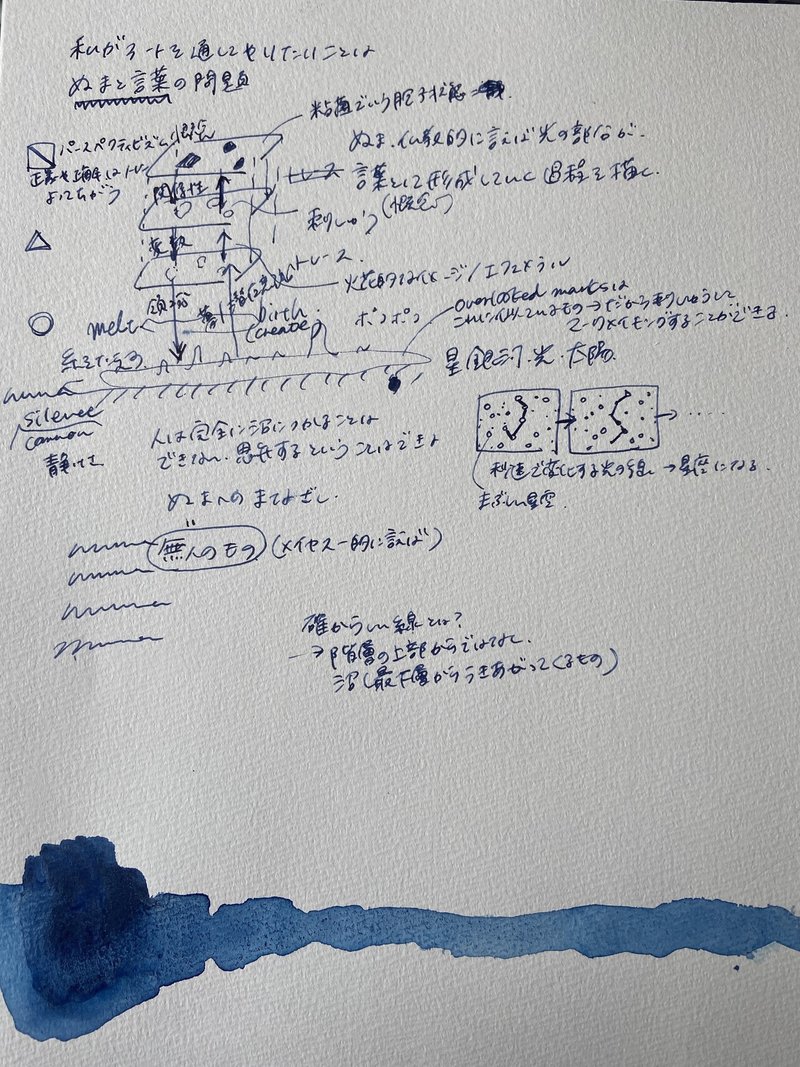 私がアートを通してやりたいことは
ぬまと言葉の問題
粘菌でいう胞子状態
パースペクティビズム 概念
ぬま、仏教的に言えば光の部分が、
正義や理解はトレー
よってちがう
関係性
トレース
言葉として形成していく過程を描く
(概念)
刺しゅう
変数
トレース
領域
潜在
火花的なイメージ/エフェメラル
melt
birth
(create)
ポンポン
overlooted marksは
これに似ているもの→だから刺しゅうして
マークメイキングすることができる
星、銀河、光、太陽
silence
cannon
静けさ
人は完全に沼につかることは
できない、思考するということはできよ
ぬまへのまなざし
光の線→星座になる
まぶしい星空
無人のもの (メイヤスー的に言えば)
確からしい線とは?
→階層の上部からではなく
沼(最下層からうきあがってくるもの)